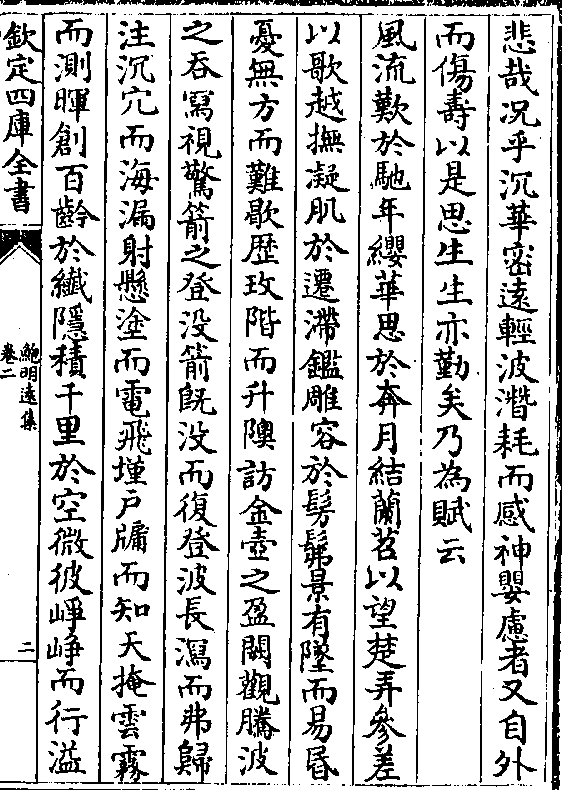 悲哉况乎沉華密遠輕波潛耗而感神嬰慮者又自外
而傷壽以是思生生亦勤矣乃為賦云
風流歎於馳年纓華思於奔月結蘭苕以望楚弄參差
以歌越撫凝肌於遷滯鑑雕容於髣髴景有墜而易昏
憂無方而難歇歴玫階而升隩訪金壺之盈闕觀騰波
之吞寫視驚箭之登没箭旣没而復登波長瀉而弗歸
注沉穴而海漏射懸塗而電飛墐户牖而知天掩雲霧
而測暉創百齡於纖隱積千里於空微彼崢崢而行溢
欽定四庫全書
鮑明遠集
卷二
二